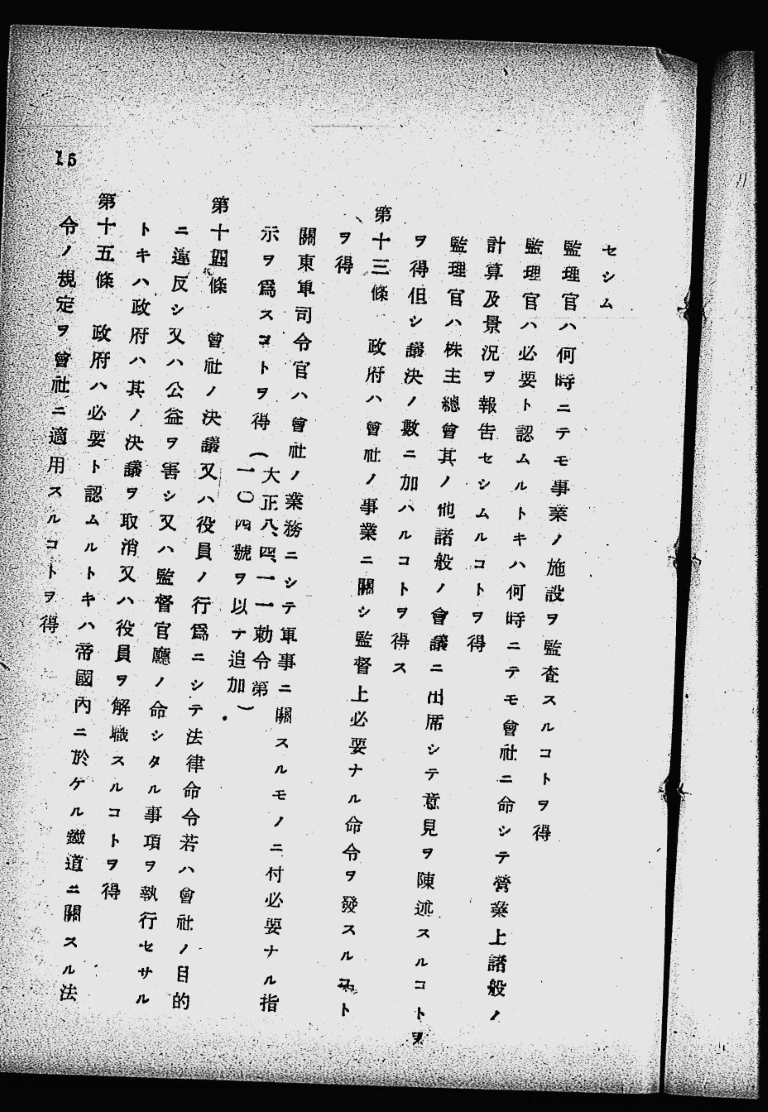 セシム
監理官ハ何時ニテモ事業ノ施設ヲ監査スルコトヲ得
監理官ハ必要ト認ムルトキハ何時ニテモ會社ニ命シテ營業上諸般ノ
計算及景況ヲ報告セシムルコトヲ得
監理官ハ株主總會其ノ他諸般ノ會議ニ出席シテ意見ヲ陳述スルコトヲ
ヲ得但シ議決ノ數ニ加ハルコトヲ得ス
第十三條 政府ハ會社ノ事業ニ關シ監督上必要ナル命令ヲ發スルコト
ヲ得
關東軍司令官ハ會社ノ業務ニシテ軍事ニ關スルモノニ付必要ナル指
示ヲ爲スコトヲ得(大正八、四、一一勅令第
一〇四號ヲ以テ追加)
第十四條 會社ノ決議又ハ役員ノ行爲ニシテ法律命令若ハ會社ノ目的
ニ違反シ又ハ公益ヲ害シ又ハ監督官廳ノ命シタル事項ヲ執行セサル
トキハ政府ハ其ノ決議ヲ取消又ハ役員ヲ解職スルコトヲ得
第十五條 政府ハ必要ト認ムルトキハ帝國内ニ於ケル鐵道ニ關スル法
令ノ規定ヲ會社ニ適用スルコトヲ得
15